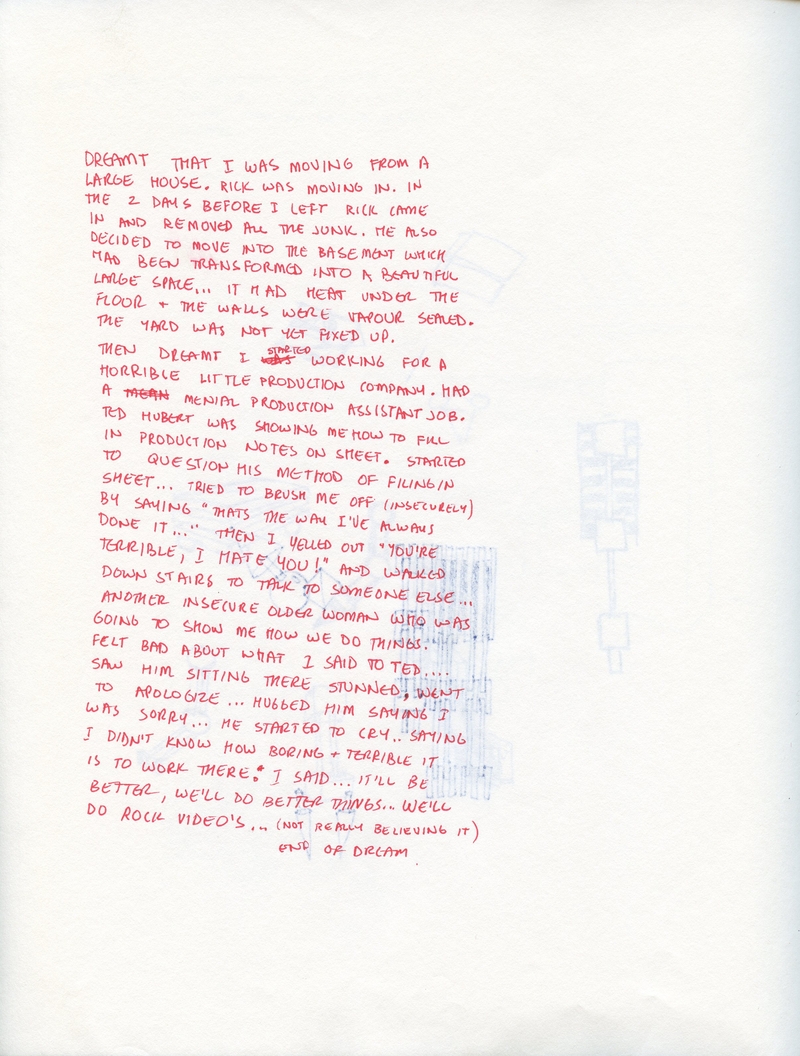 DREAMT THAT I WAS MOVING FROM A
LARGE HOUSE. RICK WAS MOVING IN. IN
THE 2 DAYS BEFORE I LEFT RICK CAME
IN AND REMOVED ALL THE JUNK. HE ALSO
DECIDED TO MOVE INTO THE BASEMENT WHICH
HAD BEEN TRANSFORMED INTO A BEAUTIFUL
LARGE SPACE... IT HAD HEAT UNDER THE
FLOOR + THE WALLS WERE VAPOUR SEALED.
THE YARD WAS NOT YET FIXED UP.
THEN DREAMT I WAS STARTED WORKING FOR A
HORRIBLE LITTLE PRODUCTION COMPANY. HAD
A MEAN MENIAL PRODUCTION ASSISTANT JOB.
TED HUBERT WAS SHOWING ME HOW TO FILL
IN PRODUCTION NOTES ON SHEET. STARTED
TO QUESTION HIS METHOD OF FILING IN
SHEET... TRIED TO BRUSH ME OFF (INSECURELY)
BY SAYING "THATS THE WAY I'VE ALWAYS
DONE IT..." THEN I YELLED OUT "YOU'RE
TERRIBLE, I HATE YOU!" AND WALKED
DOWN STAIRS TO TALK TO SOMEONE ELSE...
ANOTHER INSECURE OLDER WOMAN WHO WAS
GOING TO SHOW ME HOW WE DO THINGS.
FELT BAD ABOUT WHAT I SAID TO TED....
SAW HIM SITTING THERE STUNNED, WENT
TO APOLOGIZE... HUGGED HIM SAYING I
WAS SORRY... HE STARTED TO CRY.. SAYING
I DIDN'T KNOW HOW BORING + TERRIBLE IT
IS TO WORK THERE. I SAID... IT'LL BE
BETTER, WE'LL DO BETTER THINGS... WE'LL
DO ROCK VIDEO'S... (NOT REALLY BELIEVING IT)
END OF DREAM